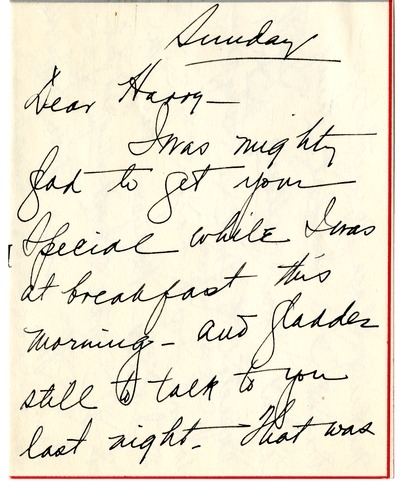 Sunday
Dear Harry—
I was mighty
glad to get your
Special while I was
at breakfast this
morning – and gladder
still to talk to you
last night. That was